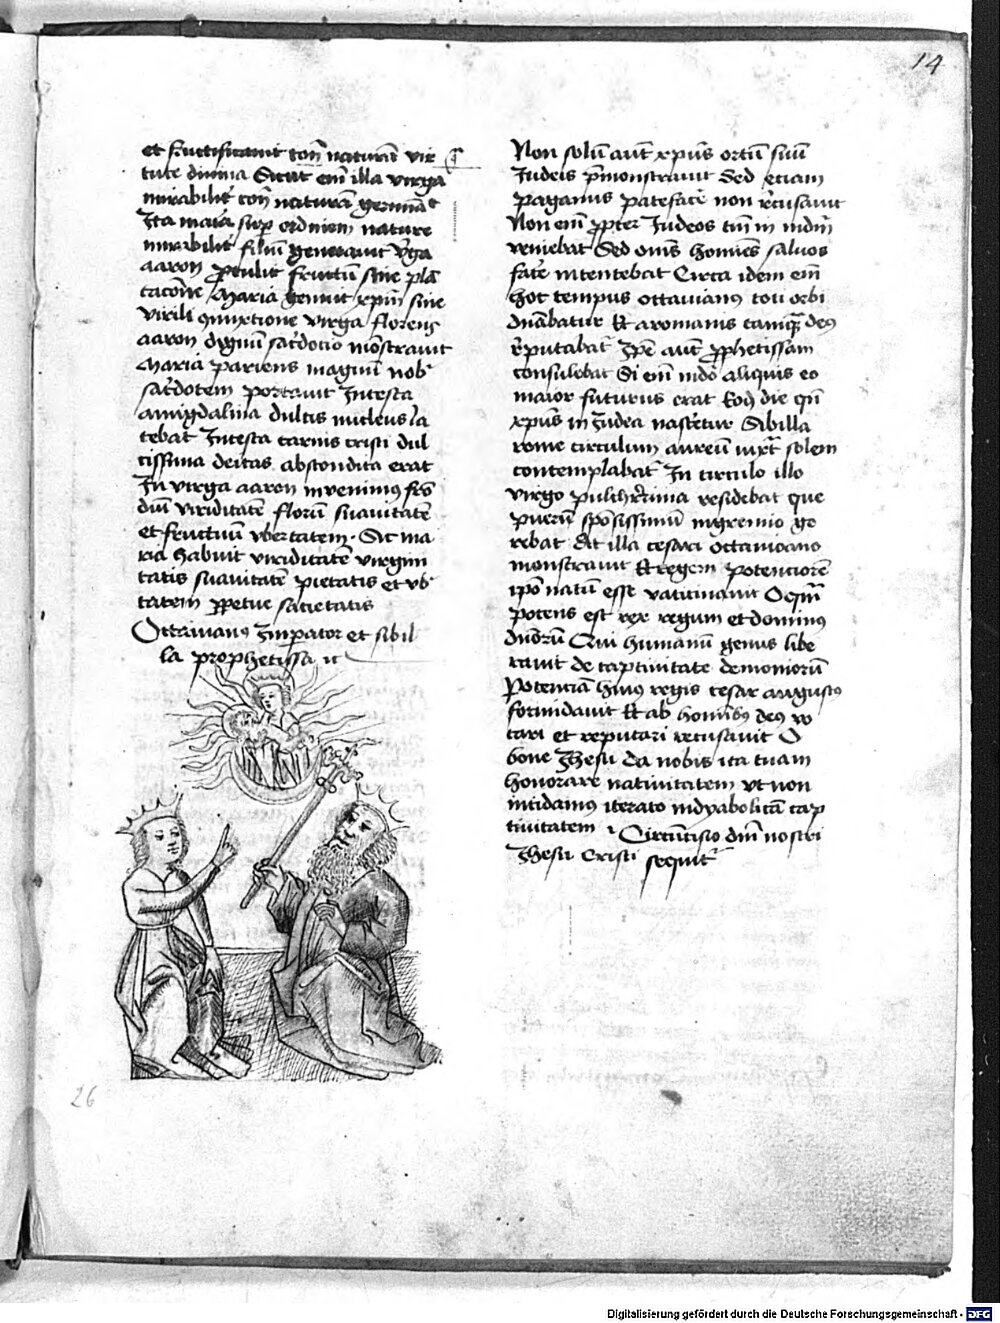 14
et fructificauit contͣ naturā vir
tute diuina Sicut em̄ illa virga
mirabilit͛ contͣ naturā germinͣt
Ita maīa sup̄ ordinem nature
mirabilit͛ filiū generauit V͛ga
aaron ꝓtulit fructū sine plā
tacōne Maria genuit xp̄m sine
virili ꝯiunxtione virga florens
aaron dignū sac͛docio mōstrauit
Maria pariens magnū nob͛
sac͛dotem portauit In testa
amigdalina dulcis nucleus la
tebat In testa carnis cristi dul
cissima deitas abscondita erat
In virga aaron inuenimus frō
diū viriditatē florū suauitatē
et fructuū vbertatem · Sic ma
ria habuit viriditatē virgini
tatis suauitatē pietatis et vb͛
tatem ꝑpetue sacietatis
Octauianus Imperator et sibil
la prophetissa
Non solū aut̄ xpūs ortū suū
Iudeis p̄monstrauit Sed etiam
paganis patefac͛e non r͛cusauit
Non em̄ ꝓpter Iudeos tm̄ in mdm̄
veniebat Sed om̄s homīes saluos
fac͛e intentebat Circa idem em̄
hoc tempus octauianus toti orbi
dn̄abatur Et a romanis tamqͣ deus
r͛putabat͛ Ip̄e aut̄ ꝓphetissam
consulebat Si em̄ mdō aliquis eo
maior futurus erat Eodͥ die qn̄
xpūs in Iudea nasc͛etur Sibilla
rome circulum aureū iuxtͣ solem
contemplabat͛ In circulo illo
virgo pulch͛rima residebat que
puerū spōsissimū in gremio ge
rebat Qd̄ illa cesari octauioano
monstrauit Et regem potenciorē
ip̄o natū esse vaticinauit O qm̄
potens est rex regum et dominus
dn̄orū Qui humanū genus libe
rauit de captiuitate demoniorū
Potenciā huius regis cesar augustus
formidauit Et ab homībus deus vo
cari et reputari recusauit O
bone Ihesu da nobis ita tuam
honorare natiuitatem vt non
incidamus iterato in dyabolicā cap
tiuitatem Circūcisio dm̄ nostri
Ihesu Cristi sequit͛
26
Digitalisierung gefördert durch die Deutsche Forschungsgemeinschaft - DFG